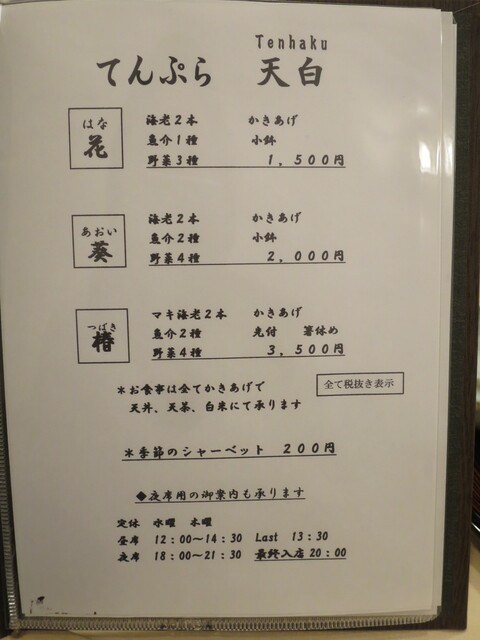 Tenhaku
てんぷら 天白
はな
花
海老2本 かきあげ
魚介1種 小鉢
野菜3種 1,500円
あおい
葵
海老2本 かきあげ
魚介2種 小鉢
野菜4種 2,000円
つばき
椿
マキ海老2本 かきあげ
魚介2種 先付 箸休め
野菜4種 3,500円
*お食事は全てかきあげで
天丼、天茶、白米にて承ります
全て税抜き表示
*季節のシャーベット 200円
◆夜席用の御案内も承ります
定休 水曜 木曜
昼席 12:00〜14:30 Last 13:30
夜席 18:00〜21:30 最終入店20:00